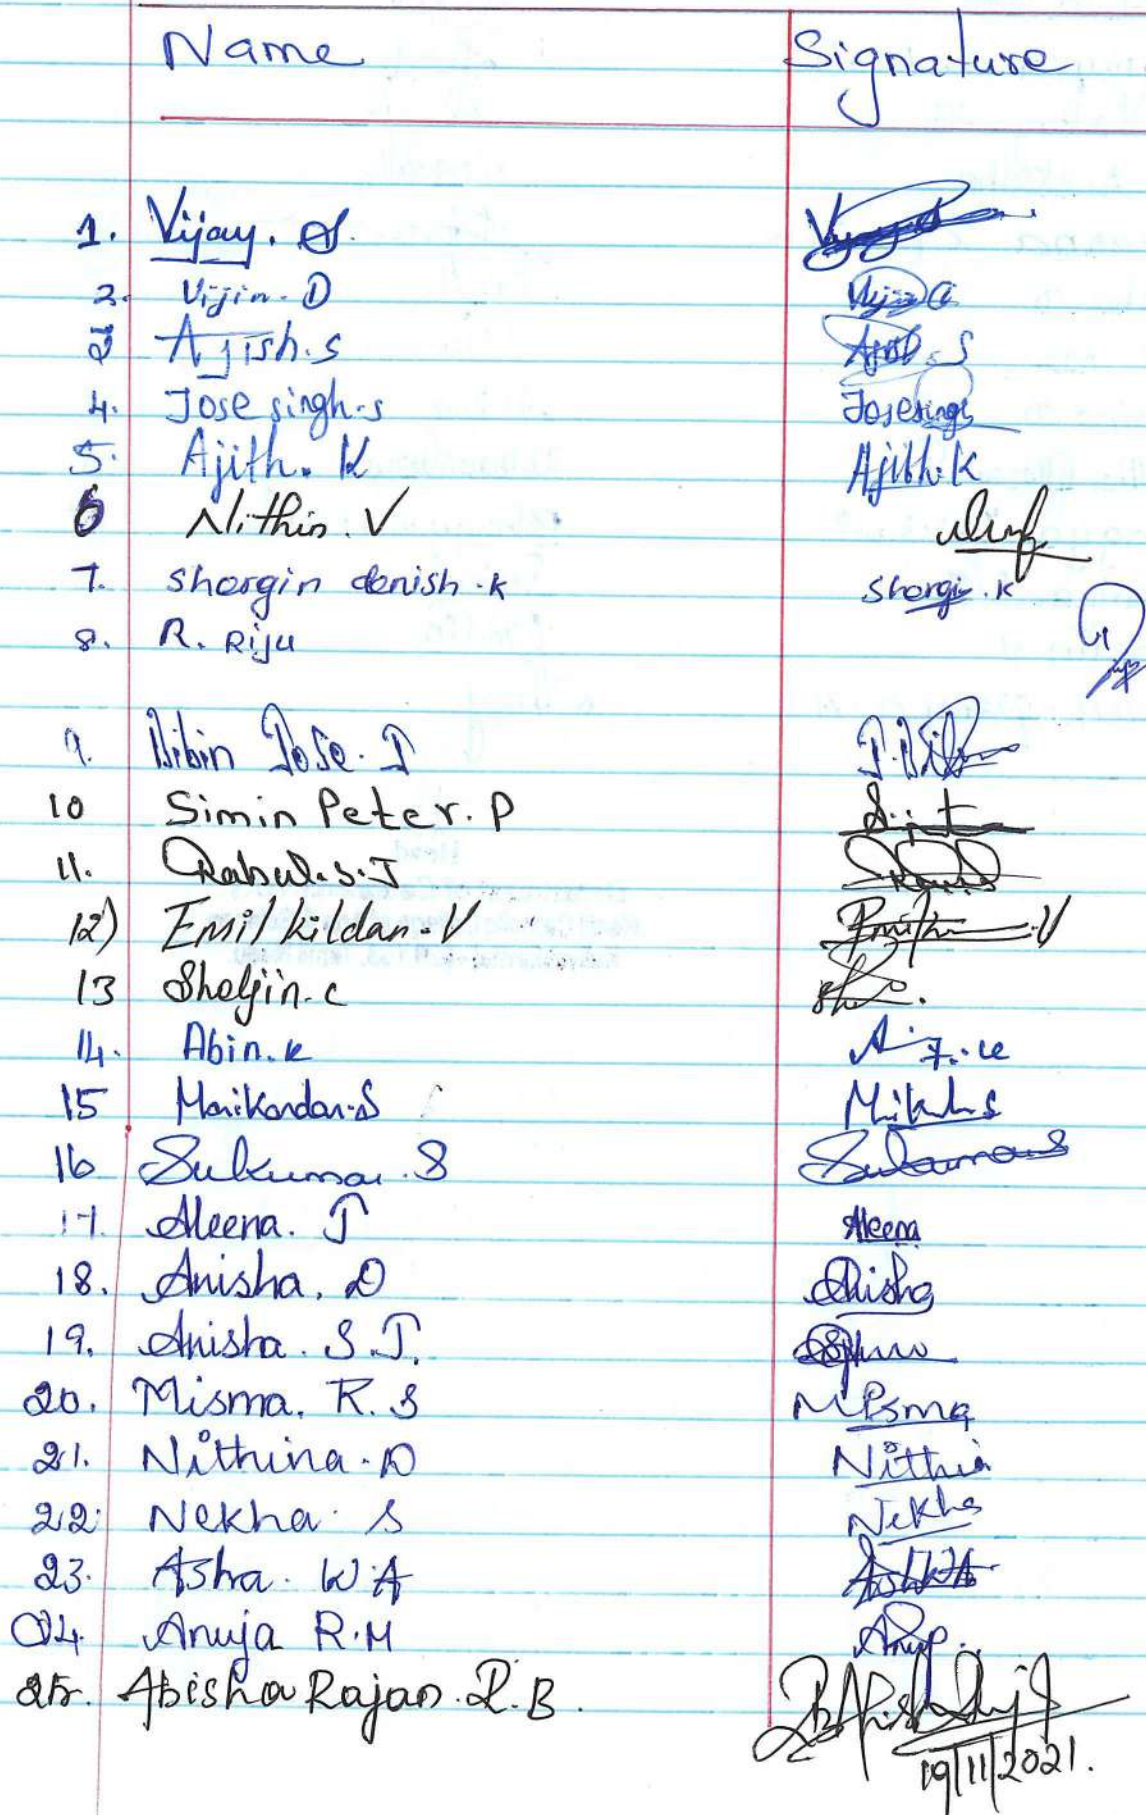 Name Signature
1. Vijay. S
2. Vijin. D
3 Ajish.s Ajish. S
4. Jose singh.s Josesingh
5. Ajith. K Ajith.K
6 Nithin. V
7. Shargin denish.k Shargi.K
8. R. Riju
9. Bibin Jose. J
10 Simin Peter. P
11. Rahul.S.J
12) Emil kildan.V
13 Sheljin.c
14. Abin.k
15 Manikandan.S
16 Sukumar. S
17. Aleena. J Aleena
18. Anisha. D Anisha
19. Anisha. S.J.
20. Misma. R. S Misma
21. Nithina. D Nithina
22. Nekha. S Nekha
23. Asha. W.A Asha W A
24. Anuja R.M Anuja
25. Abisha Rajan. R.B.
19/11/2021.